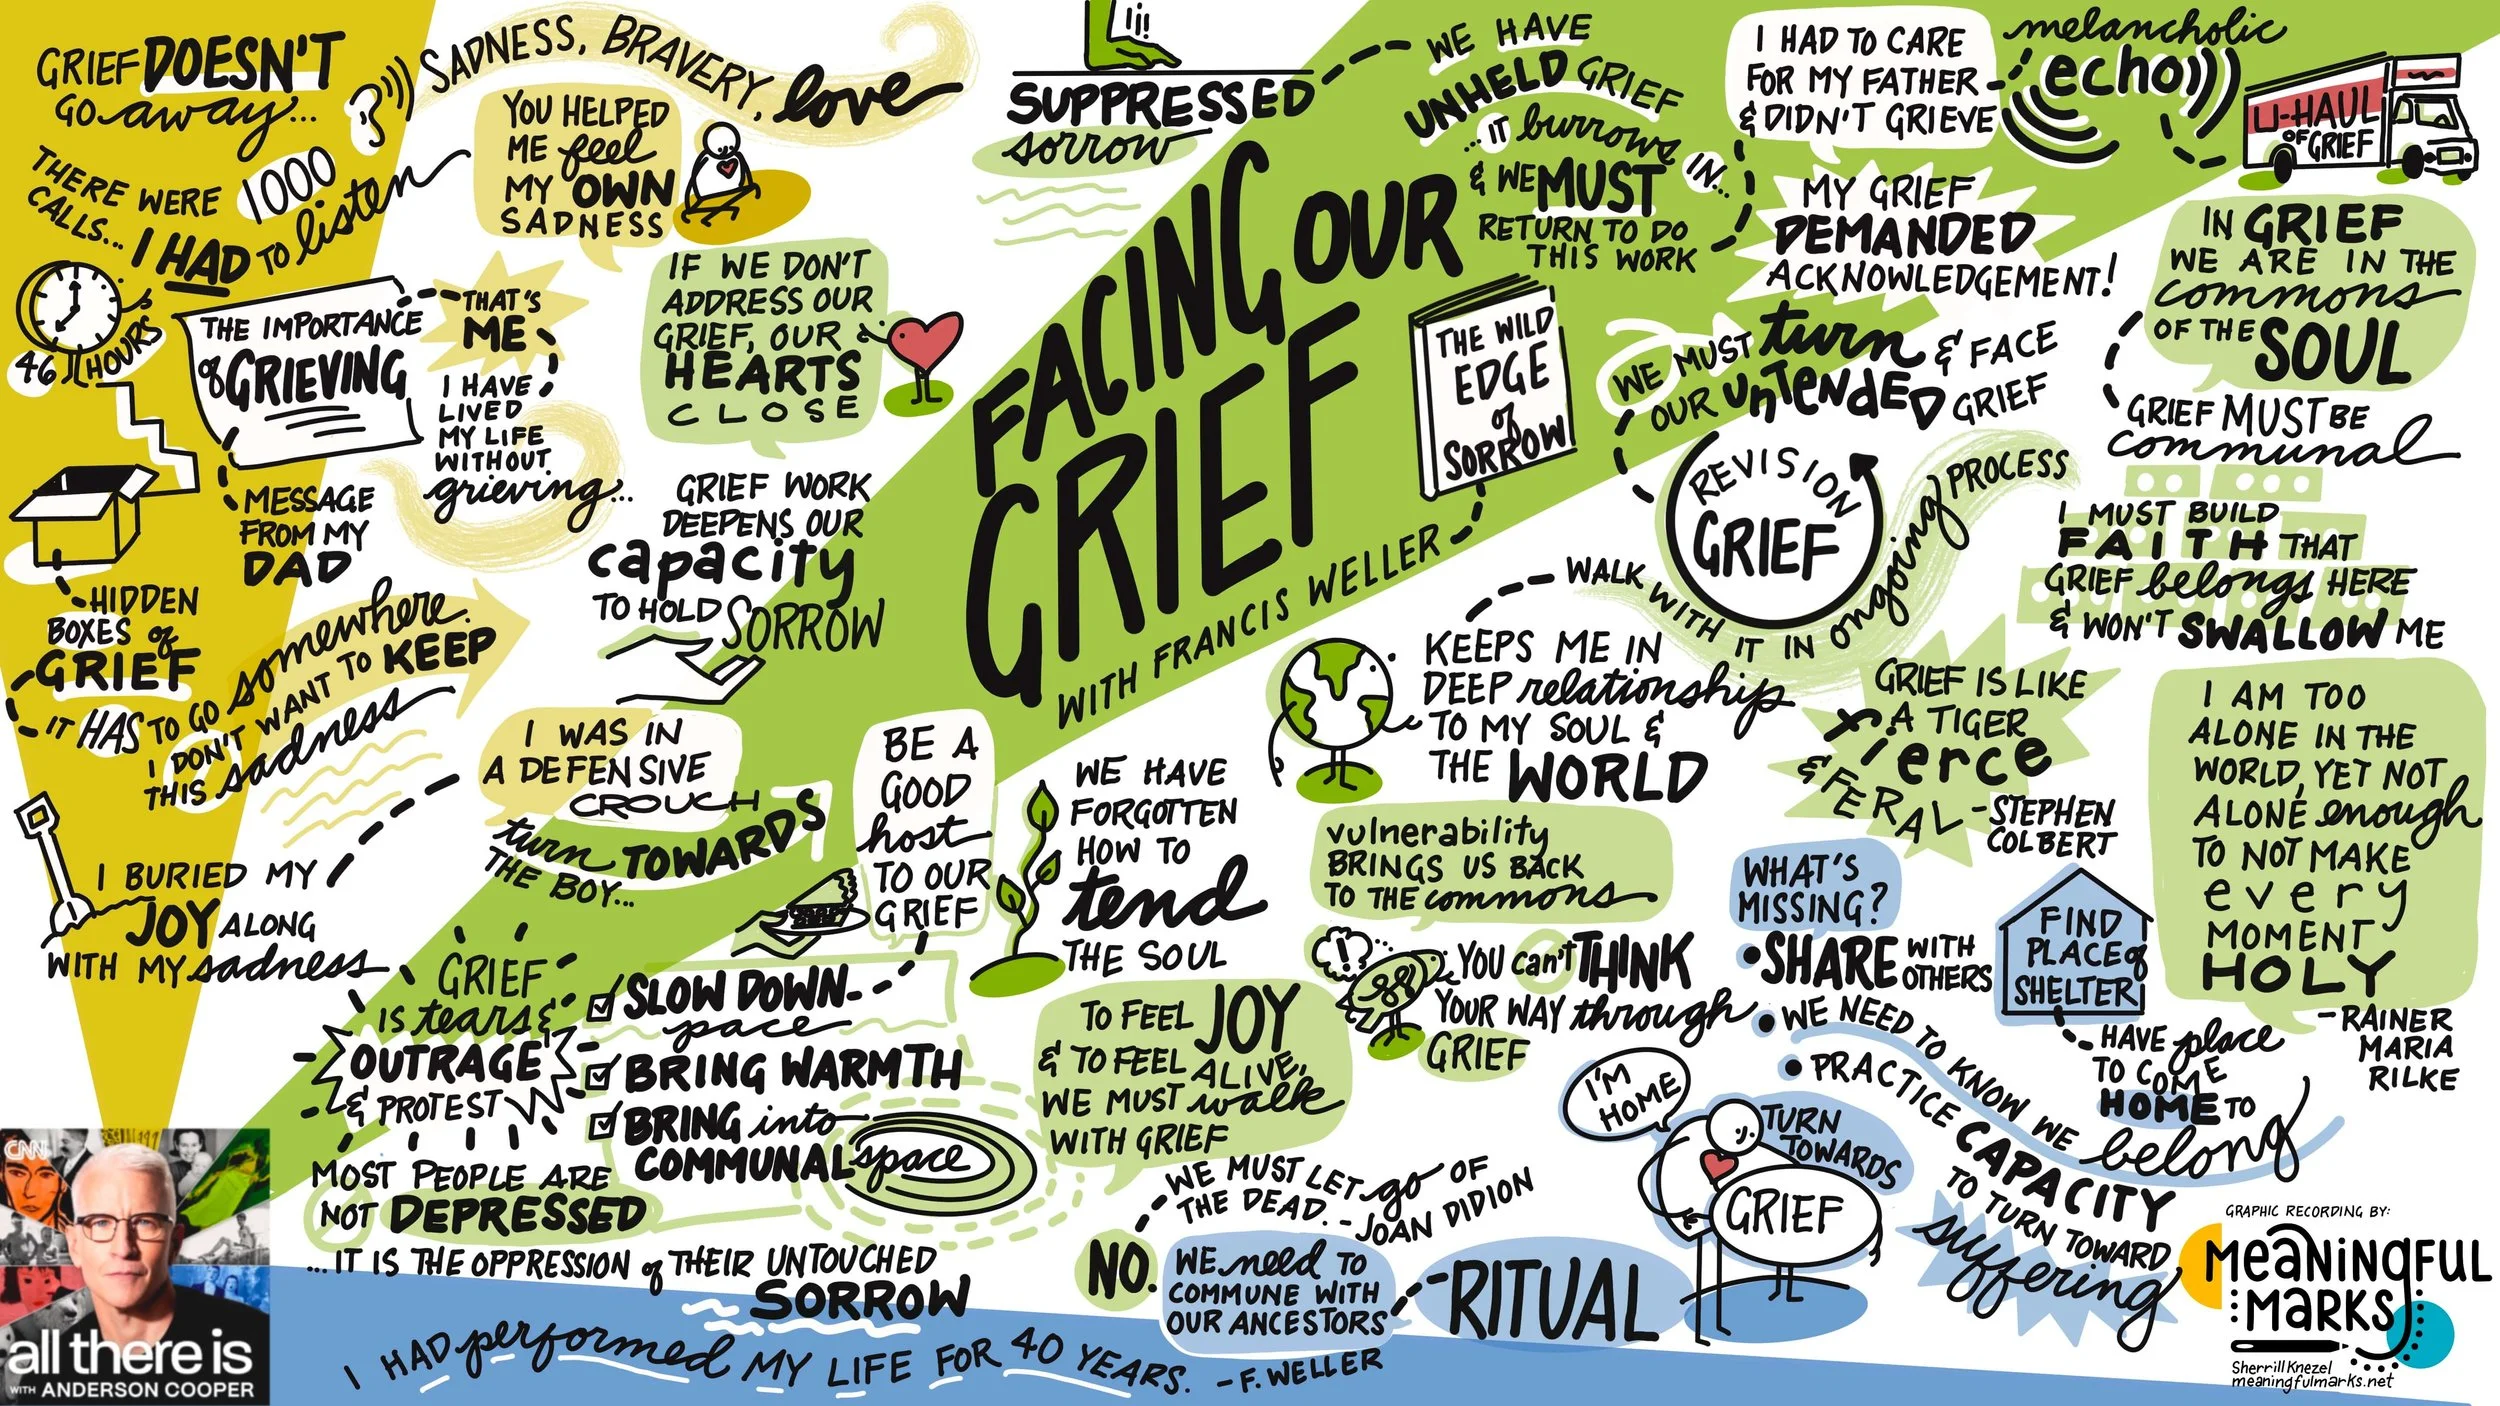 GRIEF DOESN'T
GO away...
SADNESS, BRAVERY, love
THERE WERE 1000
CALLS... I HAD TO listen
46 HOURS
YOU HELPED
ME feel
MY OWN
SADNESS
THE IMPORTANCE
of GRIEVING
THAT'S
ME
I HAVE
LIVED
MY LIFE
WITHOUT
grieving...
MESSAGE
FROM MY
DAD
HIDDEN
BOXES of
GRIEF
IT HAS TO GO somewhere.
I DON'T WANT TO KEEP
THIS sadness
I BURIED MY
JOY ALONG
WITH MY sadness
I WAS IN
A DEFENSIVE
CROUCH
turn TOWARDS
THE BOY...
IF WE DON'T
ADDRESS OUR
GRIEF, OUR
HEARTS
CLOSE
GRIEF WORK
DEEPENS OUR
capacity
TO HOLD SORROW
SUPPRESSED
sorrow
WE HAVE
UNHELD GRIEF
...IT burrows IN...
& WE MUST
RETURN TO DO
THIS WORK
FACING OUR
GRIEF
WITH FRANCIS WELLER
THE WILD
EDGE
of
SORROW
I HAD TO CARE
FOR MY FATHER
& DIDN'T GRIEVE
melancholic
echo
U-HAUL
OF GRIEF
MY GRIEF
DEMANDED
ACKNOWLEDGEMENT!
WE MUST turn & FACE
OUR UNTENDED GRIEF
IN GRIEF
WE ARE IN THE
commons
OF THE SOUL
GRIEF MUST BE
communal
REVISION
GRIEF
WALK WITH IT IN ongoing PROCESS
I MUST BUILD
FAITH THAT
GRIEF belongs HERE
& WON'T SWALLOW ME
KEEPS ME IN
DEEP relationship
TO MY SOUL &
THE WORLD
GRIEF IS LIKE
A TIGER
fierce
& FERAL - STEPHEN
COLBERT
I AM TOO
ALONE IN THE
WORLD, YET NOT
ALONE enough
TO NOT MAKE
every
MOMENT
HOLY
- RAINER
MARIA
RILKE
BE A
GOOD
host
TO OUR
GRIEF
WE HAVE
FORGOTTEN
HOW TO
tend
THE SOUL
vulnerability
BRINGS US BACK
TO THE commons
!?
YOU can't THINK
YOUR WAY through
GRIEF
WHAT'S
MISSING?
• SHARE WITH
OTHERS
• WE NEED TO KNOW WE belong
• PRACTICE CAPACITY
TO TURN TOWARD
suffering
FIND
PLACE of
SHELTER
HAVE place
TO COME
HOME TO
GRIEF
IS tears &
OUTRAGE
& PROTEST
SLOW DOWN
pace
BRING WARMTH
BRING into
COMMUNAL space
MOST PEOPLE ARE
NOT DEPRESSED
...IT IS THE OPPRESSION of THEIR UNTOUCHED
SORROW
TO FEEL JOY
& TO FEEL ALIVE,
WE MUST walk
WITH GRIEF
WE MUST LET go OF
THE DEAD. - JOAN DIDION
NO.
WE need TO
COMMUNE WITH
OUR ANCESTORS
RITUAL
I'M
HOME
TURN
TOWARDS
GRIEF
I HAD performed MY LIFE FOR 40 YEARS. - F. WELLER
CNN
all there is
WITH ANDERSON COOPER
GRAPHIC RECORDING BY:
MeaNiNgFUL
MaRKS
Sherrill Knezel
meaningfulmarks.net